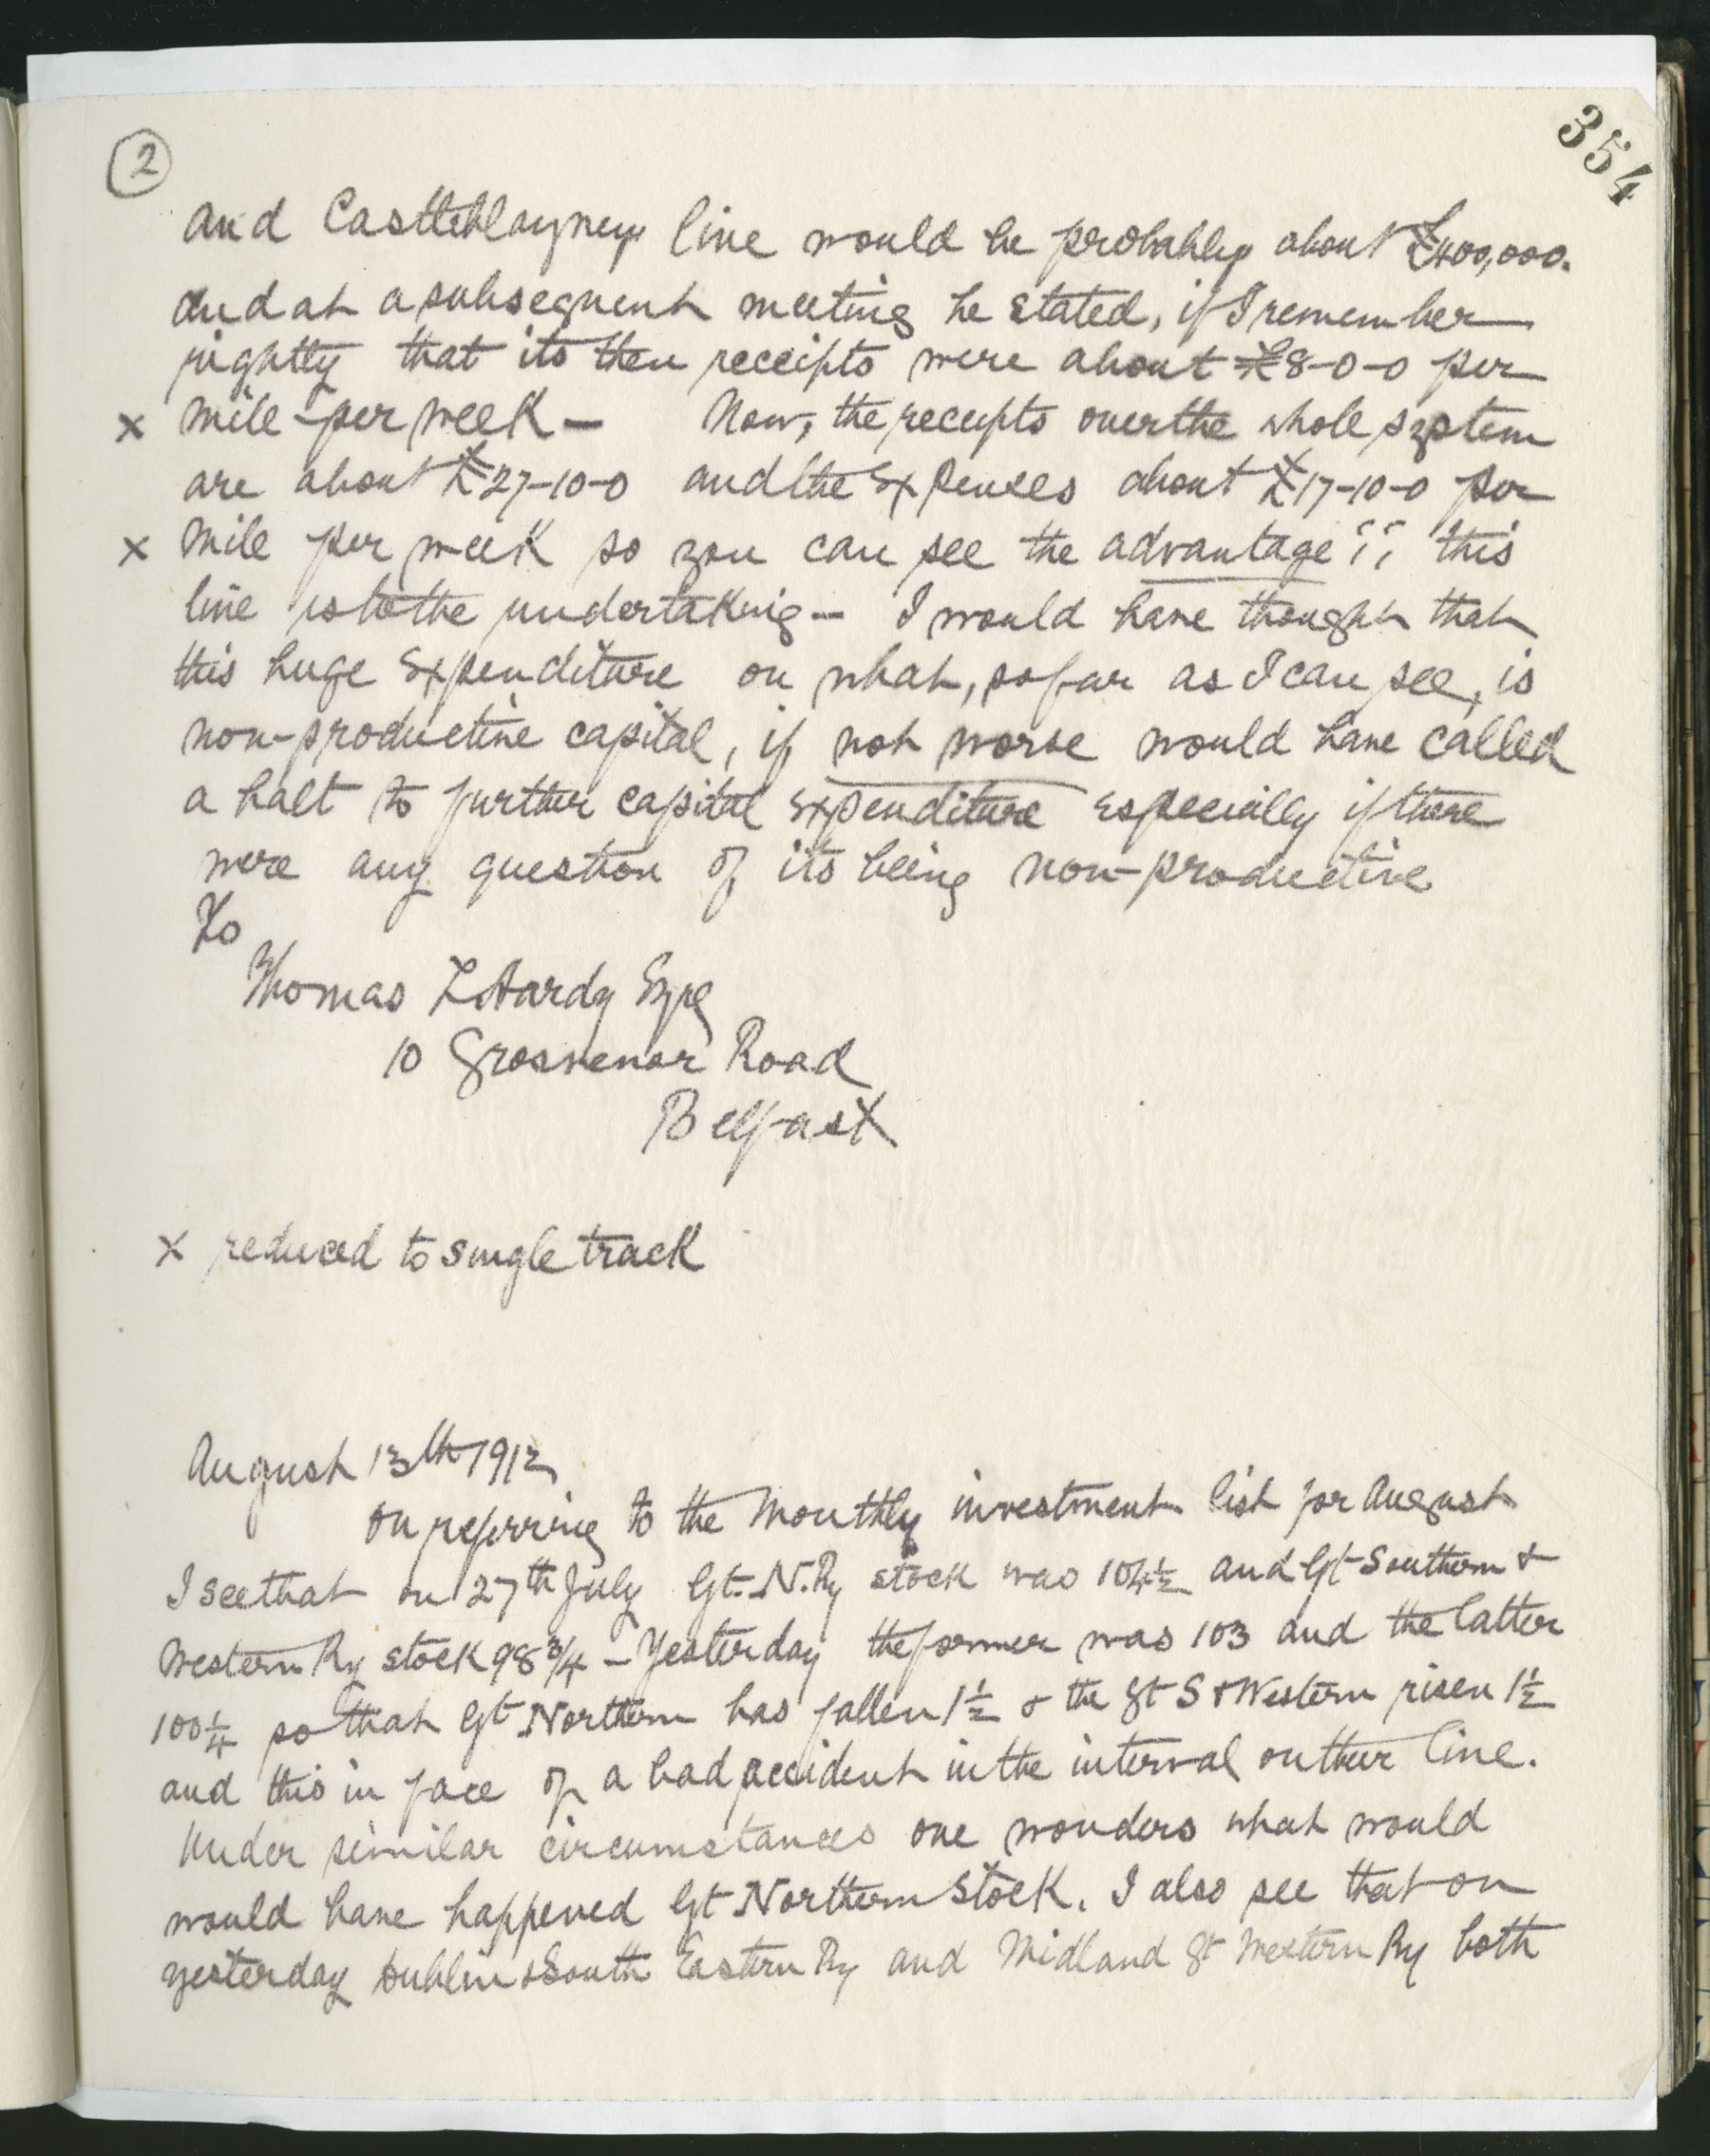 354
2
and Castleblayney line would be probably about £400,000.
and at a subsequent meeting he stated, if I remember
rightly that its then receipts were about £8-0-0 per
x mile per week – Now, the receipts over the whole system
are about £27-10-0 and the Expenses about £17-10-0 per
x mile per week so you can see the advantage !! this
line is to the undertaking – I would have thought that
this huge Expenditure on what, so far as I can see, is
non-productive capital, if not worse would have called
a halt to further capital Expenditure Especially if there
were any question of its being non-productive
To
Thomas Hardy Esqre
10 Grosvenor Road
Belfast
x reduced to single track
August 13th 1912
On referring to the Monthly investment list for August
I see that on 27th July Gt. N. Ry stock was 104½ and Gt Southern &
Western Ry stock 98¾ – Yesterday the former was 103 and the latter
100¼ so that Gt Northern has fallen 1½ & the Gt S & Western risen 1½
and this in face of a bad accident in the interval on their line.
Under similar circumstances one wonders what would
would have happened Gt Northern Stock. I also see that on
yesterday Dublin & South Eastern Ry and Midland Gt Western Ry both